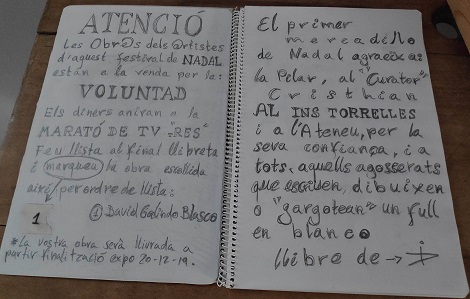 ATENCIÓ
Les Obr@s dels @rtistes
d'aquest festival de NADAL
están a la venda per la:
VOLUNTAD
Els diners aniran a la
MARATÓ DE TV "RES"
Feu llista al final llibreta
i marqueu la obra escollida
així/per ordre de llista:
1
① David Galindo Blasco
*La vostra obra serà lliurada a
partir finalització expo 20-12-19.
El primer
mercadillo
de Nadal agraeix a:
la Pilar, al "Curator"
Cristhian
AL INS TORRELLES
i a l'Ateneu, per la
seva confiança, i a
tots, aquells agosserats
que escriuen, dibuixen
o "gargotean" un full
en blanc.
llibre de →